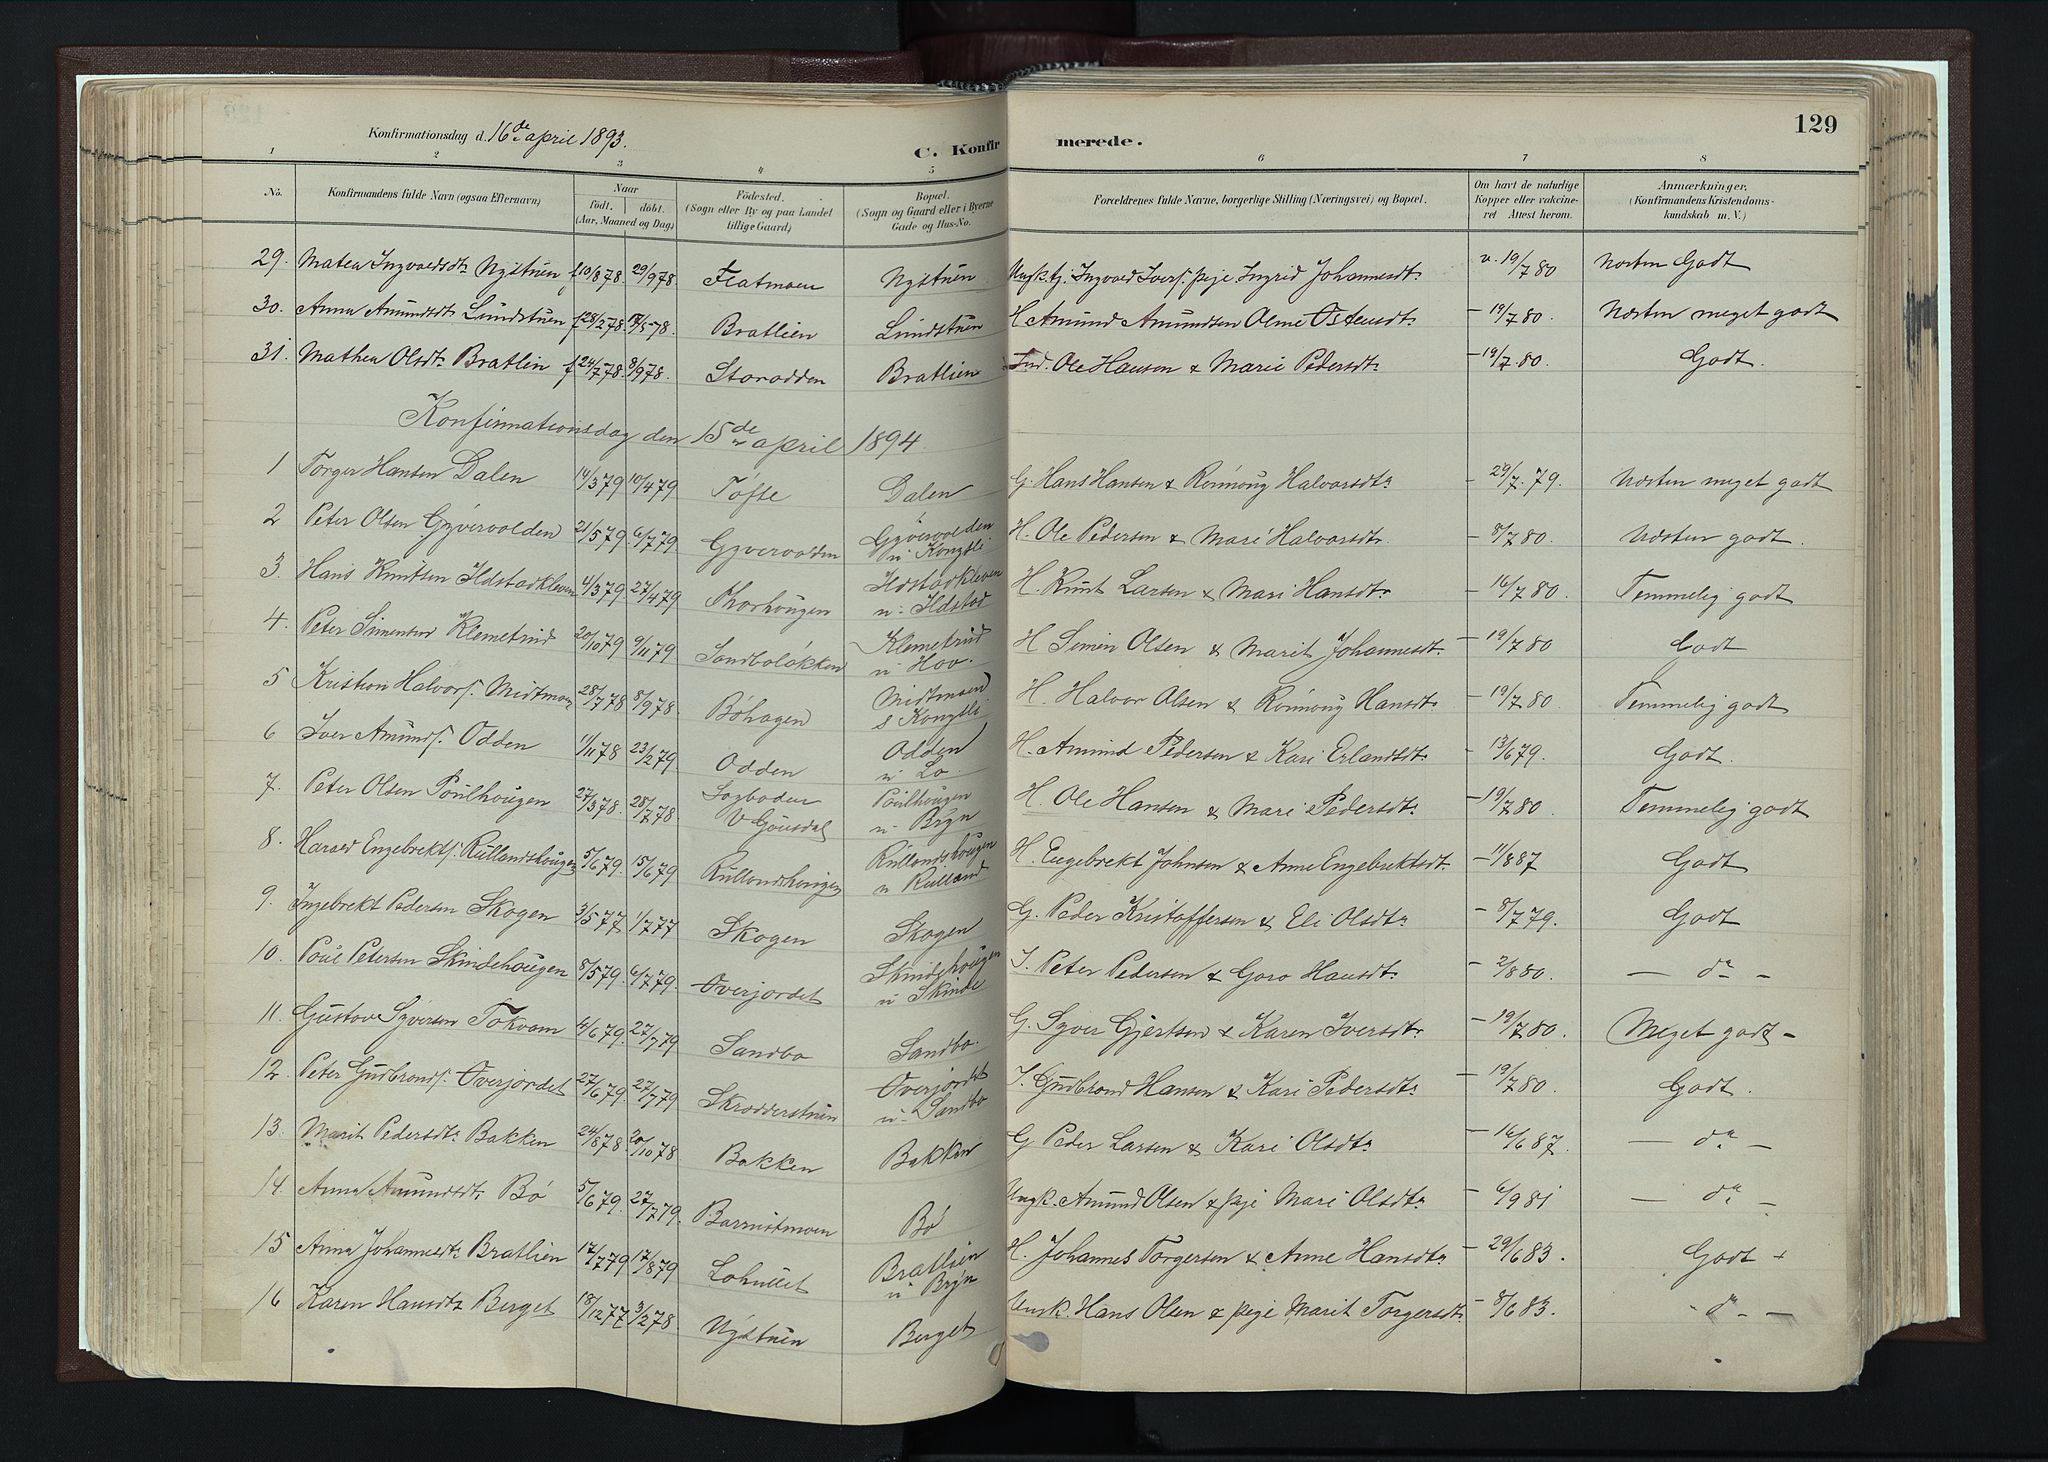 129
Konfirmationsdag d. 16de april 1893.
C. Konfirmerede.
1 2 3 4 5 6 7 8
No. Konfirmandens fulde Navn (ogsaa Efternavn) Naar födt. döbt. (Aar, Maaned og Dag) Födested. (Sogn eller By og paa Landet tillige Gaard) Bopæl. (Sogn og Gaard eller i Byerne Gade og Hus-No. Forældrenes fulde Navne, borgerlige Stilling (Næringsvei) og Bopæl. Om havt de naturlige Kopper eller vakcineret Attest herom. Anmærkninger, (Konfirmandens Kristendomskundskab m. V.)
29. Matea Ingvaldsdtr Nystuen f 10/8 78 29/9 78 Flatmoen Nystuen Ungk. tj. Ingvald Ivers. pige Ingrid Johannesdtr v. 19/7 80 Næsten Godt
30. Anna Amundsdtr Lundstuen f 28/2 78. Bratlien Lundstuen H Amund Amundsen Olme Ostensdtr - 19/7 80. Næsten meget godt
31. Mathea Olsdtr Bratlien f 24/7 78 8/9 78. Storodden Bratlien Ind. Ole Hansen & Marie Pedersdtr - 19/7. 80. Godt.
Konfirmationsdag den 15de april 1894
1 Torger Hansen Dalen 14/3 79 10/4 79 Tofte Dalen G. Hans Hansen & Rönnoug Halvorsdtr - 29/7. 79. Næsten meget godt
2 Peter Olsen Gyvervolden 21/5 79 6/7 79 Gyvervolden Gyvervolden u. Kongsli H. Ole Pedersen & Mari Halvorsdtr - 8/7 80. Næsten godt.
3. Hans Knutsen Ildstadkleven 4/3 79 27/4 79 Thorhougen Ildstadkleven u. Ildstad H. Knut Larsen & Mari Hansdtr - 16/7 80. Temmelig godt
4. Peter Simensen Klemetrud 20/10 79 9/11 79 Sandbolökken Klemetrud u. Hov. H Simen Olsen & Marit Johannesdtr - 19/7 80 Godt
5 Kristian Halvors. Midtmoen 28/7 78 8/9 78. Böhagen Midtmoen s Kongsli H. Halvor Olsen & Rönnoug Hansdtr - 19/7 80. Temmelig godt
6 Iver Amunds. Odden 11/11 78 23/2 79. Odden Odden u. Lo. H. Amund Pedersen & Kari Erlandsdtr - 13/6 79. Godt.
7. Peter Olsen Poulhougen 27/3 78. 28/7 78 V Gausdal Poulhougen u. Bryn H. Ole Hansen & Mari Pedersdtr - 19/7 80 Temmelig godt
8. Harald Engebrekts. Rullandshougen 5/6 79. 15/6 79 Rullandshougen Rullandshougen u Rulland H. Engebrekt Johnsen & Anne Engebrektsdtr. - 11/8 87 Godt
9. Ingebrekt Pedersen Skogen 3/5 77 1/7 77 Skogen Skogen G. Peder Kristoffersen & Eli Olsdtr - 8/7 79. Godt
10. Poul Petersen Skindehougen 8/5 79. 6/7 79. Overjordet Skindehougen u Skinde I. Peter Pedersen & Goro Hansdtr - 2/8 80. - do -
11. Gustav Syversen Tokvam 4/6 79. 27/7 79 Sandbo Sandbo. G. Syver Gjertsen & Karen Iversdtr - 19/7 80. Meget godt -
12. Peter Gudbrands. Overjordet 27/6 79. 27/7 79 Skrodderstuen Overjordet u. Sandbo I. Gudbrand Hansen & Kari Pedersdtr - 19/7 80. Godt.
13. Marit Pedersdtr Bakken 24/8 78. 20/10 78 Bakken Bakken G Peder Larsen & Kari Olsdtr - 16/6 87. - do -
14. Anna Amundsdtr Bö 5/6 79. 27/7 79. Bö Ungk. Amund Olsen & pige Mari Olsdtr - 6/9 81 - do -
15 Anna Johannesdtr Bratlien 17/7 79 17/8 79 Bratlien u Bryn H. Johannes Torgersen & Anne Hansdtr - 29/6 83. Godt +
16 Karen Hansdtr Berget 18/12 77 3/2 78 Nystuen Berget Ungk. Hans Olsen & pige Marit Torgersdtr - 8/6 83. - do -